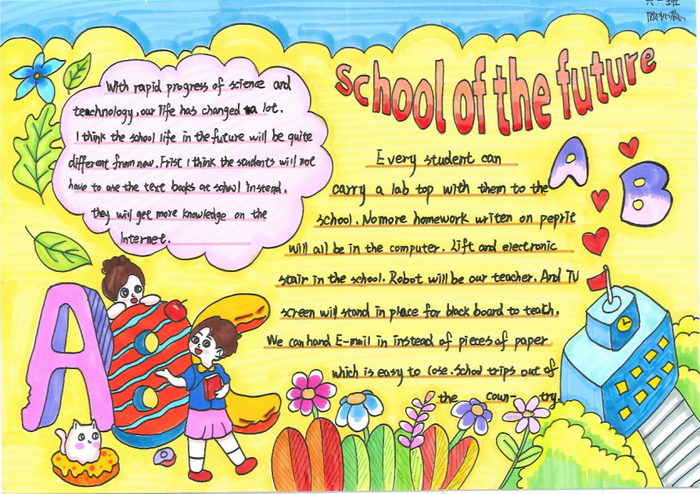 六一班
School of the future
With rapid progress of science and
teachnology, our life has changed a lot.
I think the school life in the future will be quite
different from now. Frist I think the students will not
have to use the text books at school instead,
they will get more knowledge on the
Internet.
Every student can
carry a lab top with them to the
school. No more homework writen on peprit
will all be in the computer. Lift and electronic
stair in the school. Robot will be our teacher. And TV
screen will stand in place for black board to teath.
We can hand E-mail in instead of pieces of paper
which is easy to lose. School trips out of
the coun- try.
A B
ABC